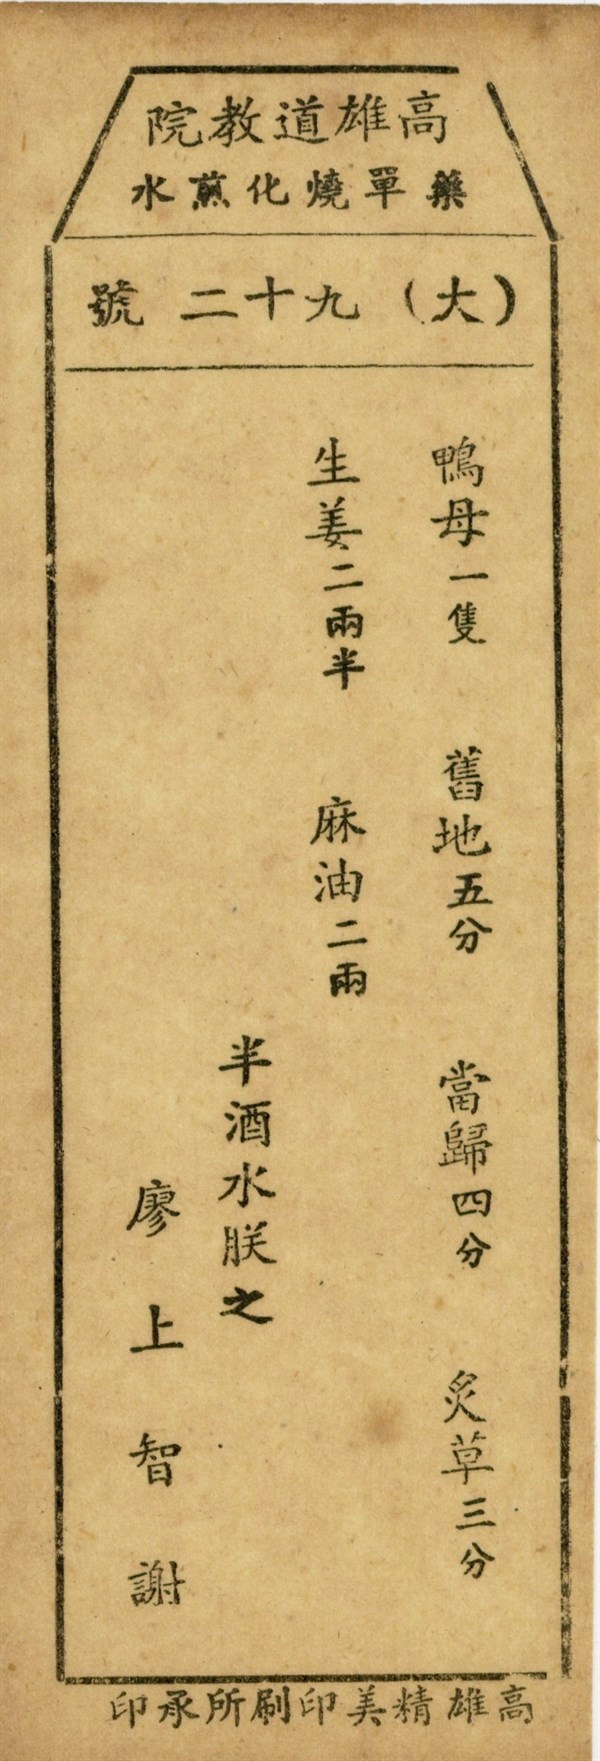 高雄道教院
藥單燒化煎水
(大)九十二號
鴨母一隻 舊地五分 當歸四分 炙草三分
生姜二兩半 麻油二兩
半酒水朕之
廖上智謝
高雄精美印刷所承印